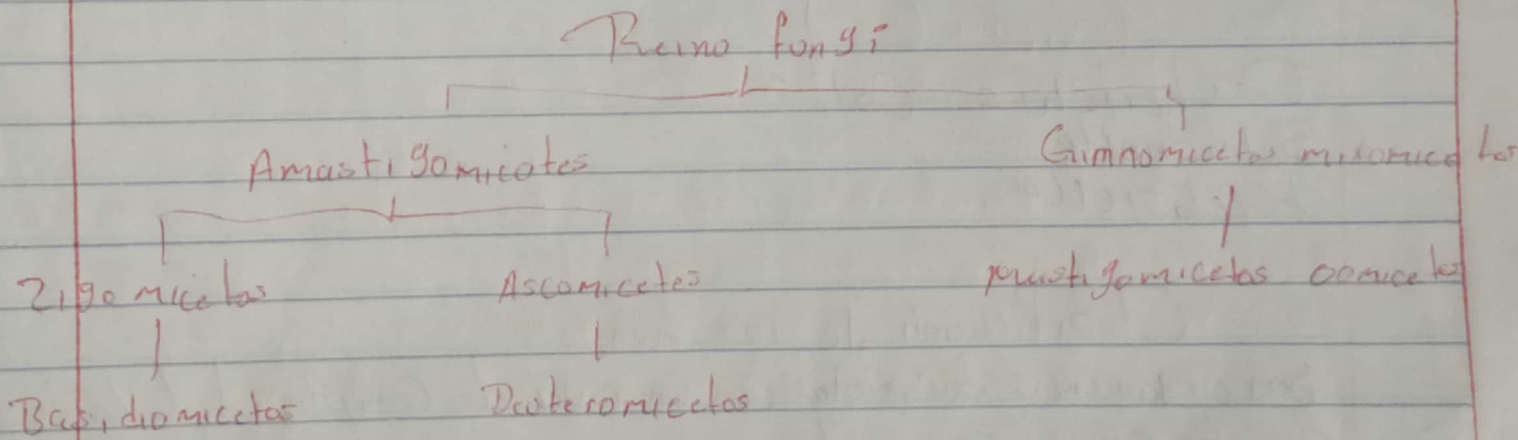 Reino fungi
Amastigomicotes Gimnomicetos mixomicetos
Zigomicetos Ascomicetes mastigomicetos oomicetos
Basidiomicetos Deuteromicetos